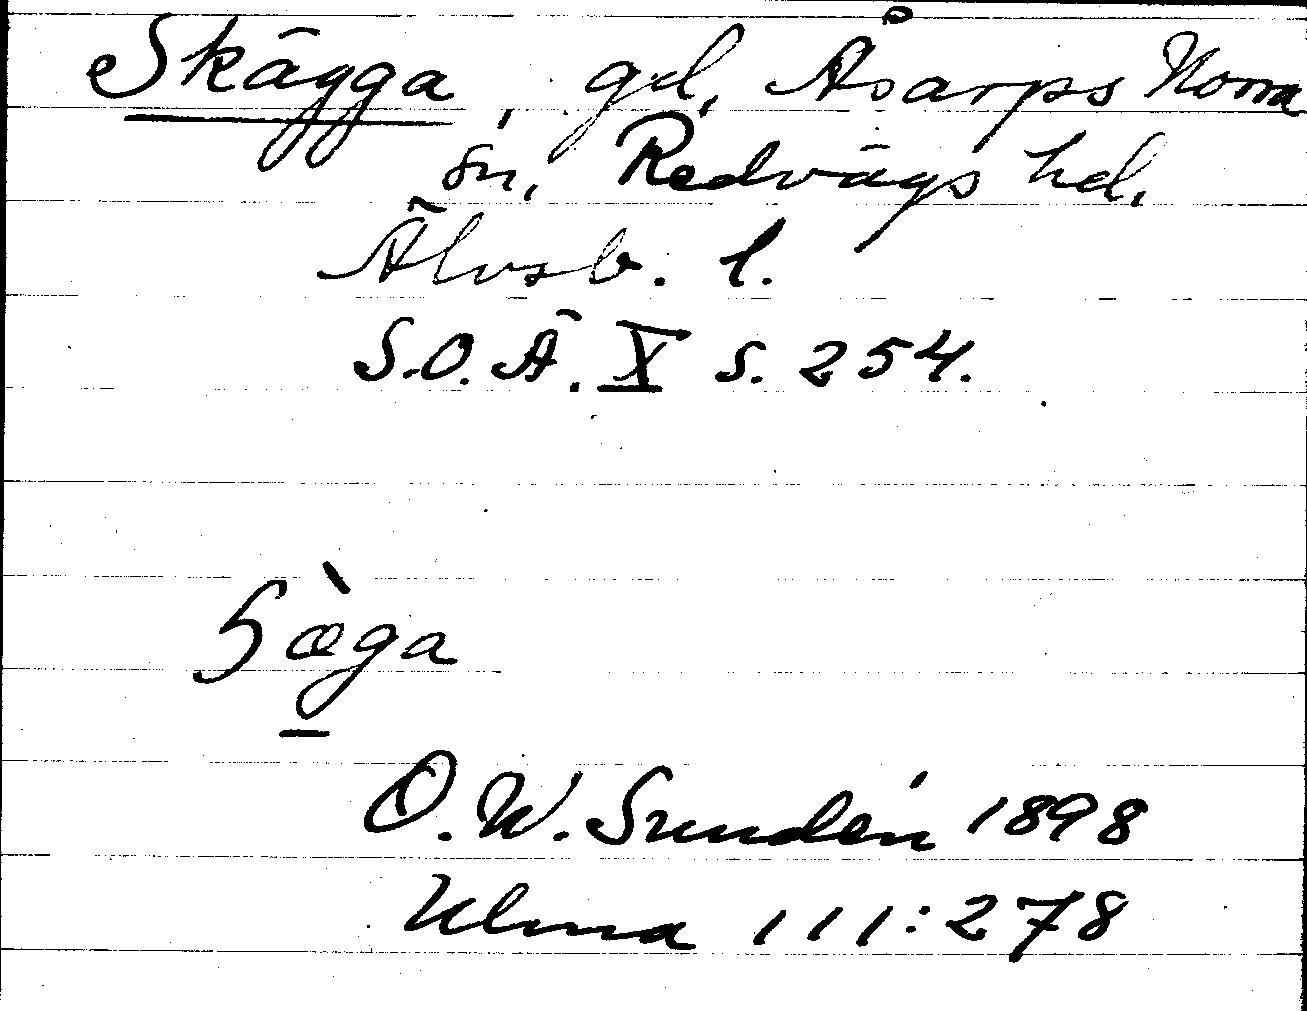 Skägga, gd, Åsarps Norra
sn, Redvägs hd.
Älvsb. l.
S.O.Ä. X s. 254.
O.W. Sundén 1898
Ulma 111:278